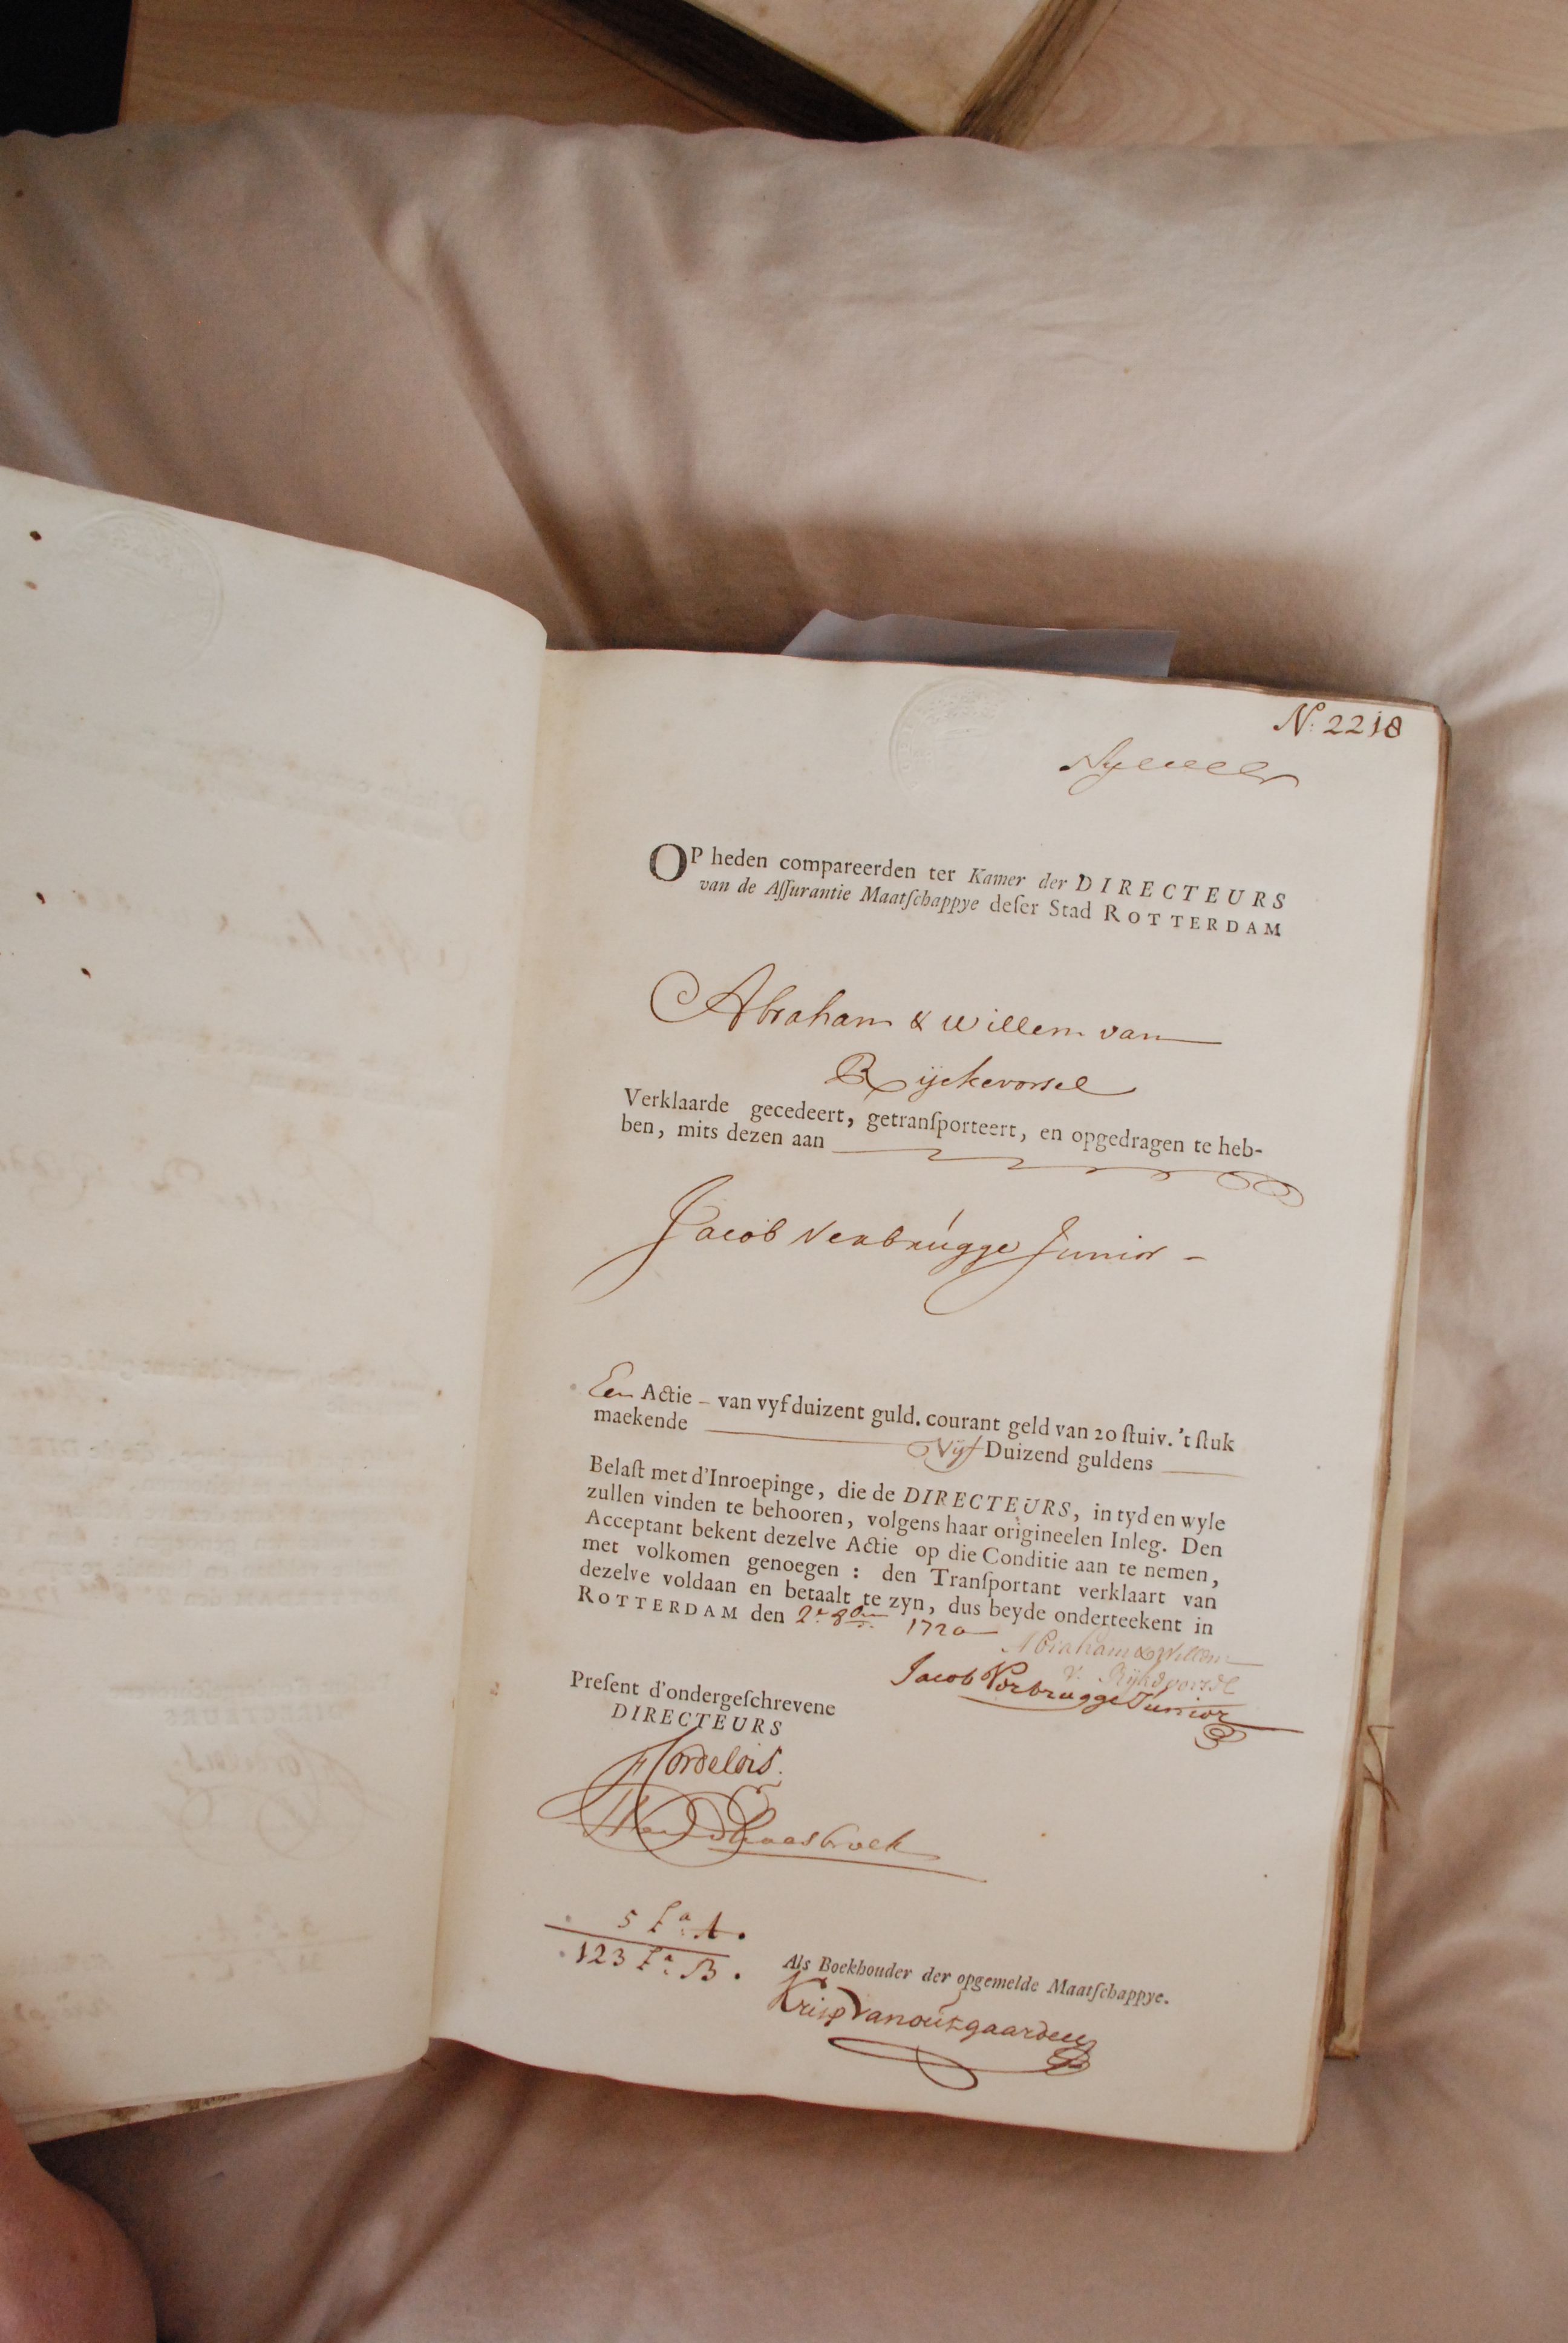 N. 2218
OP heden compareerden ter Kamer der DIRECTEURS
van de Aſſurantie Maatſchappye deſer Stad ROTTERDAM
Abraham & Willem van
Rijckevorsel
Verklaarde gecedeert, getranſporteert, en opgedragen te heb-
ben, mits dezen aan
Jacob Verbrugge Junior -
Een Actie - van vyf duizent guld. courant geld van 20 ſtuiv. 't ſtuk
maekende Vijf Duizend guldens
Belaſt met d'Inroepinge, die de DIRECTEURS, in tyd en wyle
zullen vinden te behooren, volgens haar origineelen Inleg. Den
Acceptant bekent dezelve Actie op die Conditie aan te nemen,
met volkomen genoegen : den Tranſportant verklaart van
dezelve voldaan en betaalt te zyn, dus beyde onderteekent in
ROTTERDAM den 2e 8ber 1720
Abraham & Willem
v. Rijckevorsel
Jacob Verbrugge Junior
Preſent d'ondergeſchrevene
DIRECTEURS
5 Lª A.
123 Lª B.
Als Boekhouder der opgemelde Maatſchappye.